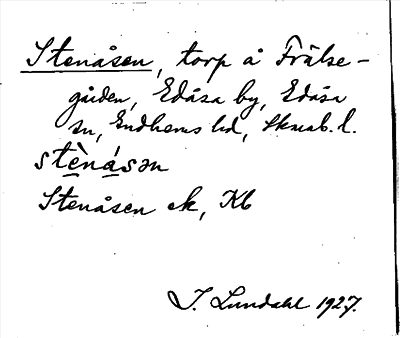 Stenåsen, torp å Frälse-
gården, Edåsa by, Edåsa
sn, Gudhems hd, Skarab. l.
stènásən
Stenåsen ek, Kb
I. Lundahl 1927.